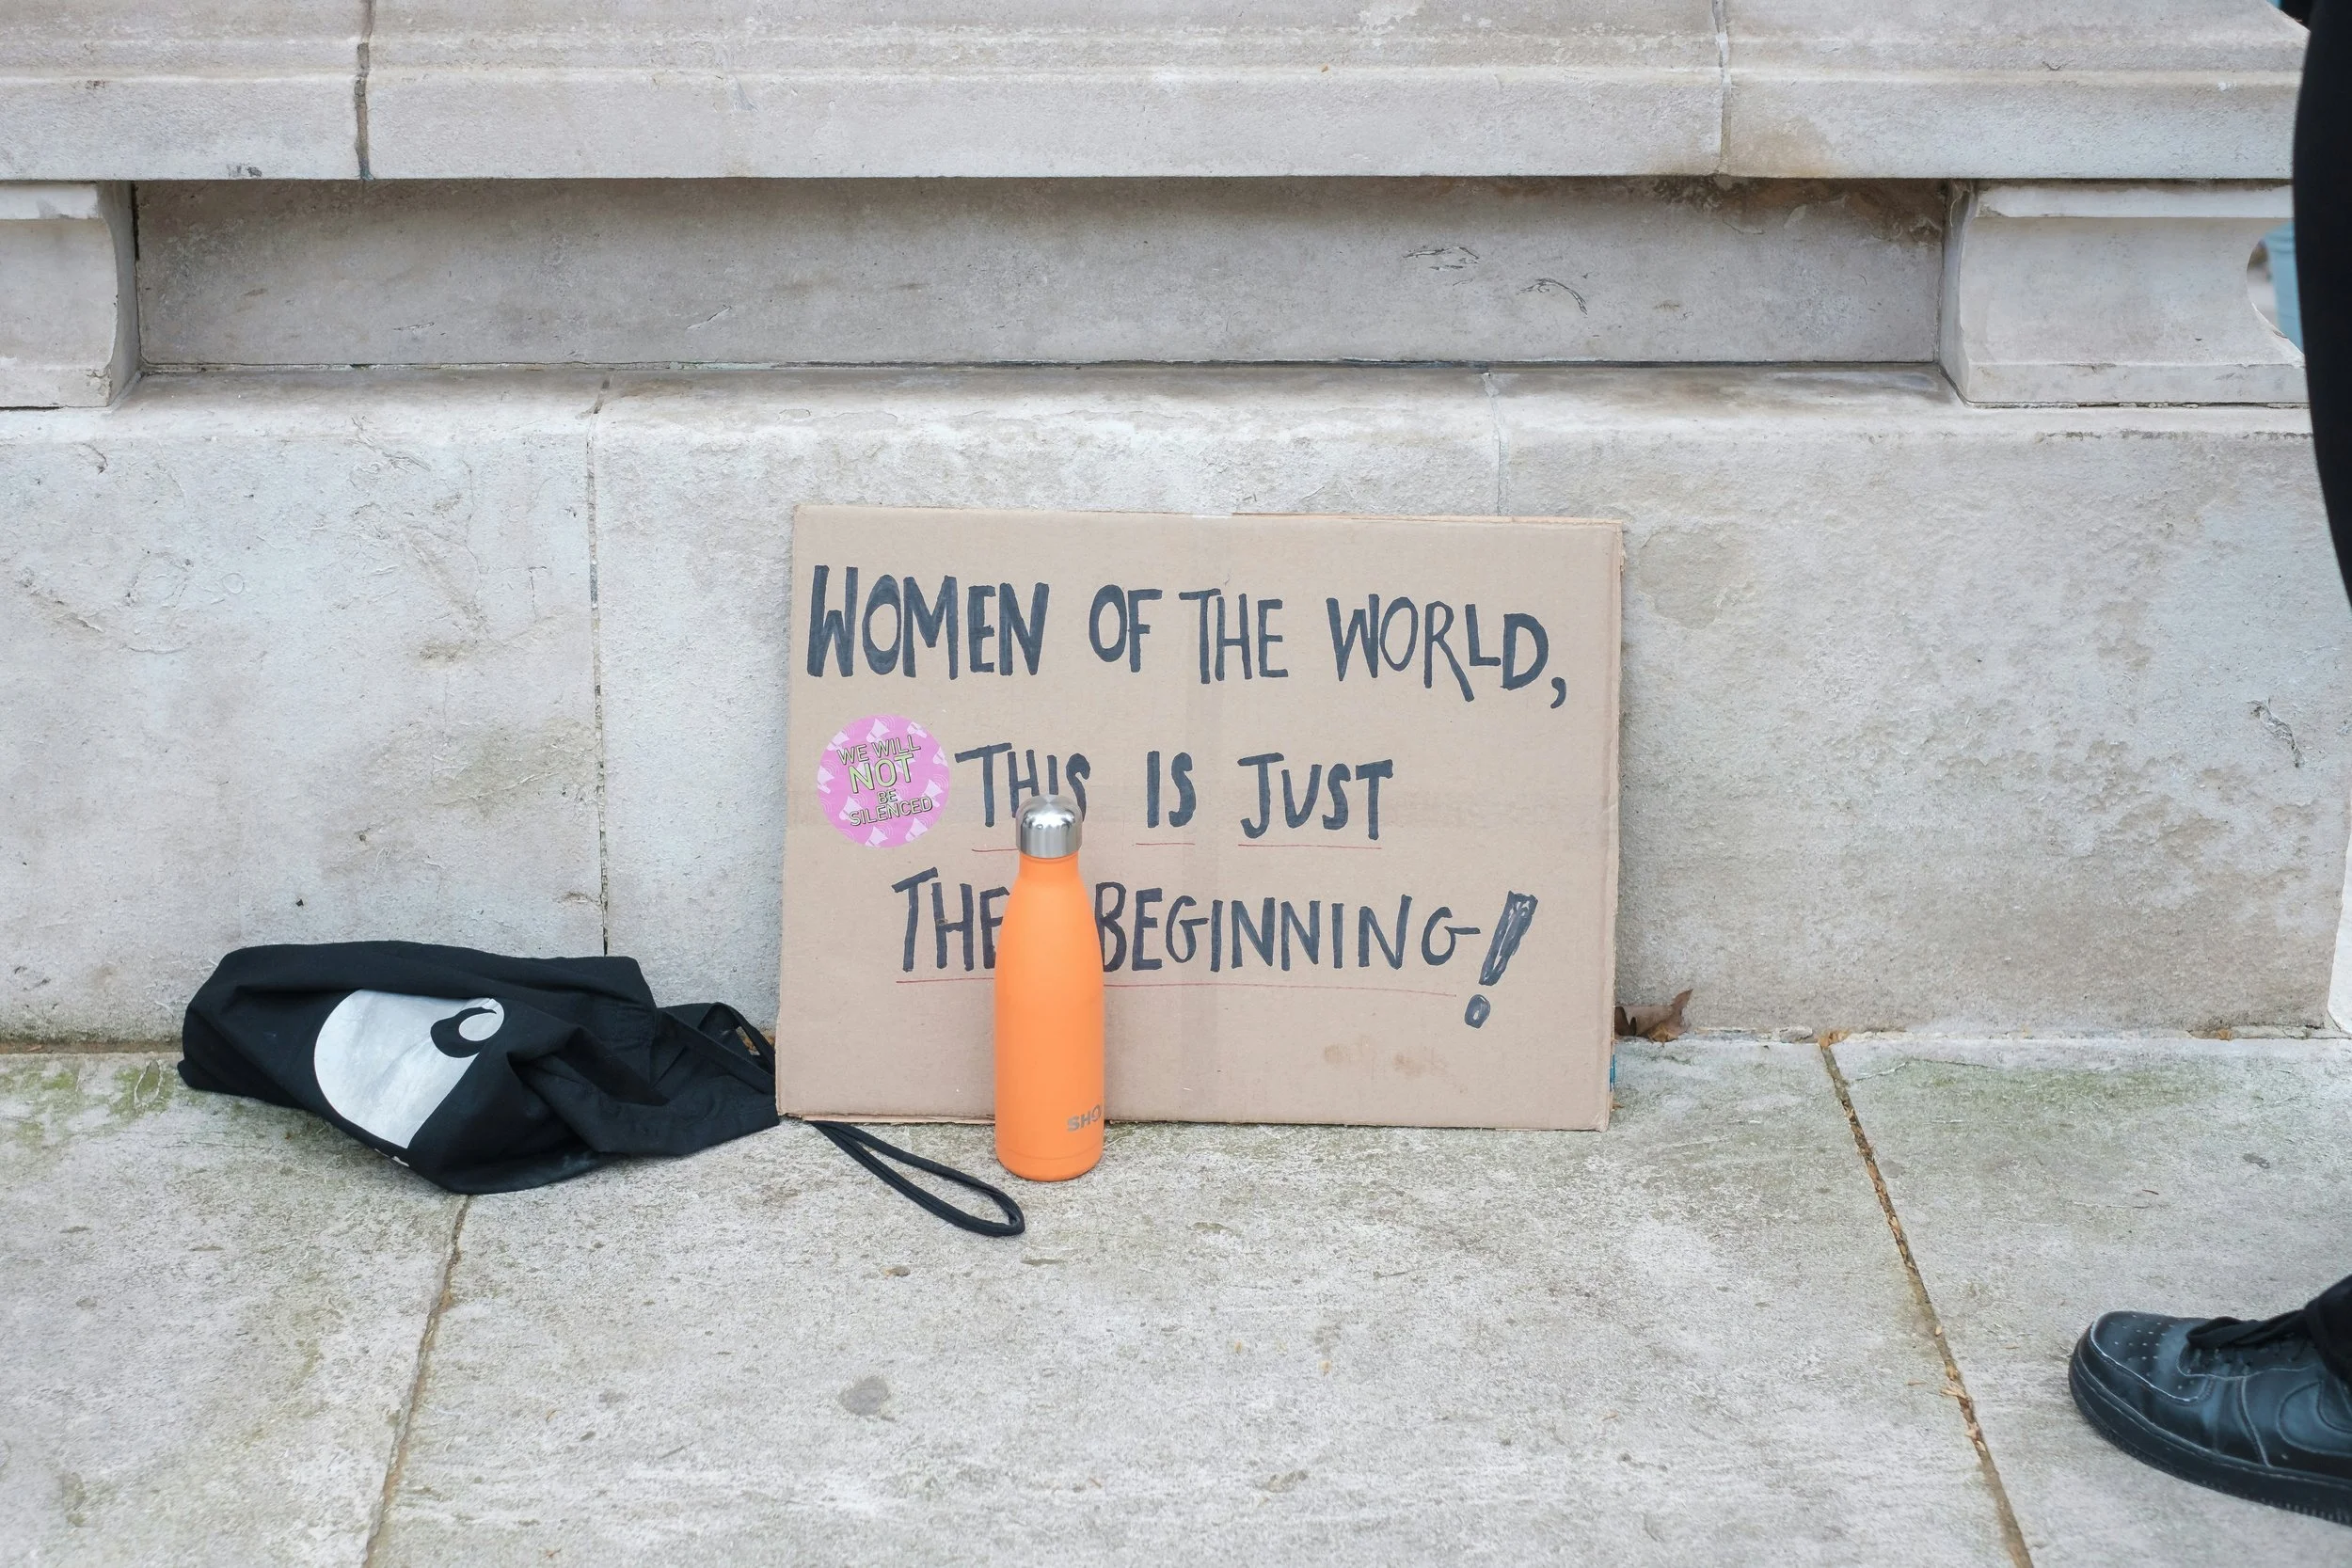 WOMEN OF THE WORLD,
WE WILL
NOT
BE
SILENCED
THIS IS JUST
THE BEGINNING!
SHO